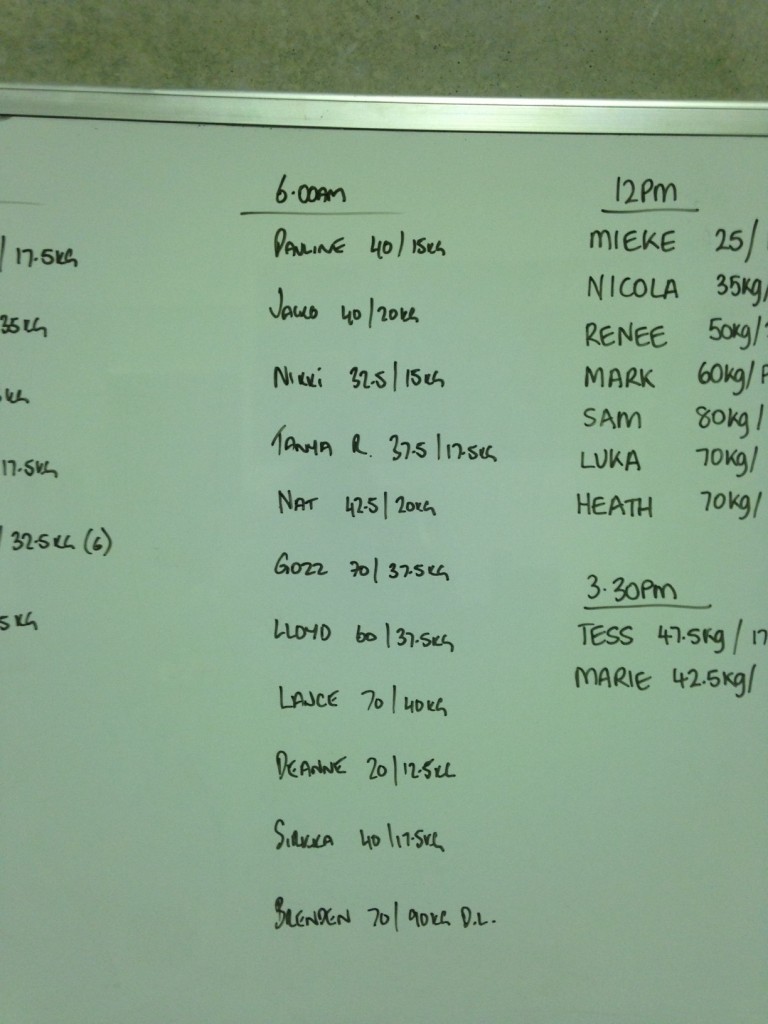 / 17.5KG
35KG
KG
17.5KG
/ 32.5KG (6)
5KG
6.00AM
PAULINE 40/15KG
40/20KG
NIKKI 32.5/15KG
TANYA R. 37.5/17.5KG
NAT 42.5/20KG
GOZZ 70/37.5KG
LLOYD 60/37.5KG
LANCE 70/40KG
DEANNE 20/12.5KG
SIRKKA 40/17.5KG
BRENDEN 70/90KG D.L.
12PM
MIEKE 25/
NICOLA 35KG/
RENEE 50KG/
MARK 60KG/
SAM 80KG/
LUKA 70KG/
HEATH 70KG/
3.30PM
TESS 47.5KG/17
MARIE 42.5KG/